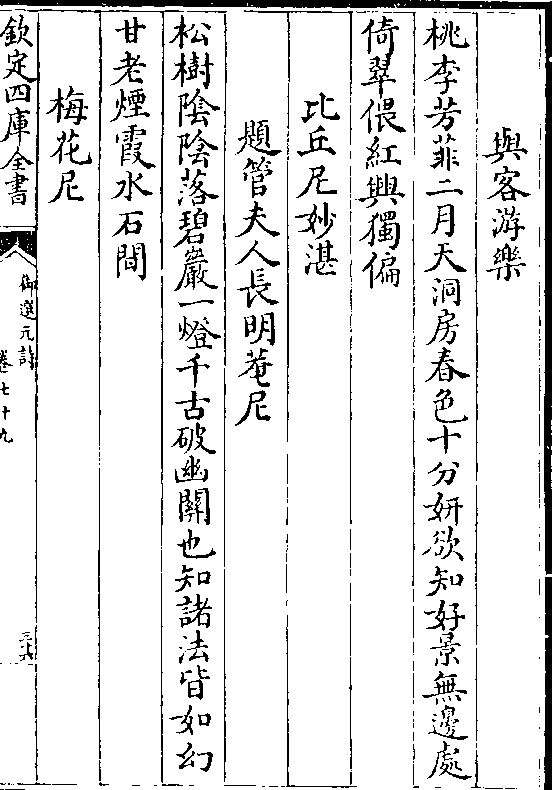 與客游樂
桃李芳菲二月天洞房春色十分妍欲知好景無邊處
倚翠偎紅興獨偏
比丘尼妙湛
題管夫人長明菴尼
松樹陰陰落碧巖一燈千古破幽關也知諸法皆如幻
甘老煙霞水石間
梅花尼
欽定四庫全書
御選元詩
卷七十九
三六